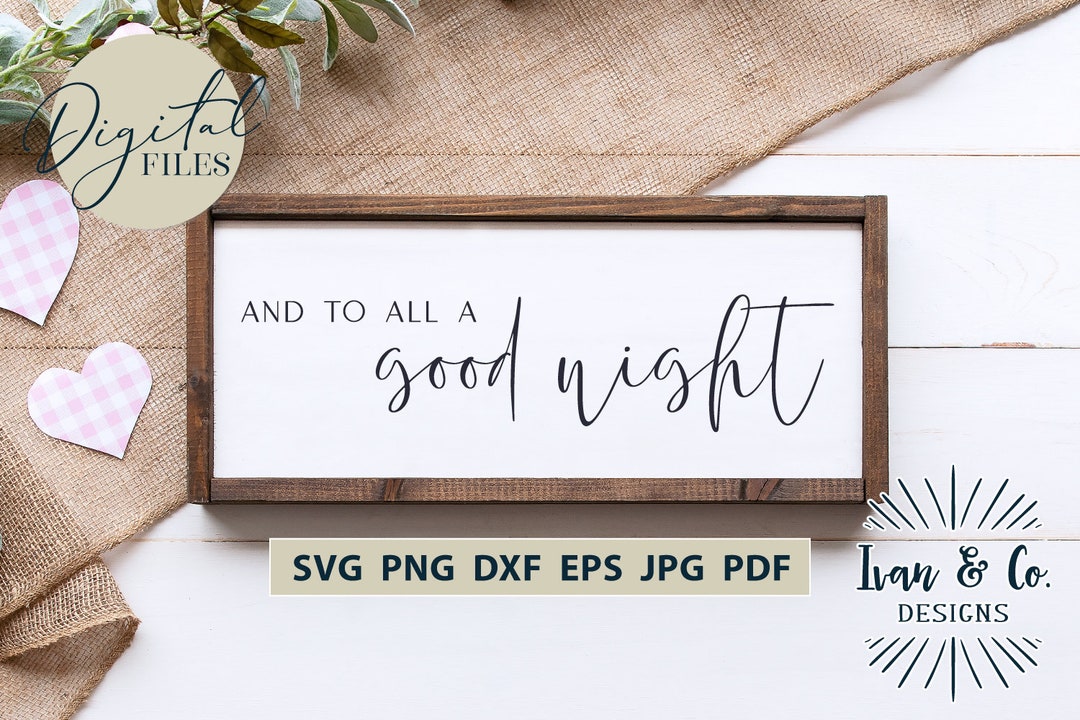 Digital
FILES
AND TO ALL A
good night
SVG PNG DXF EPS JPG PDF
Ivan & Co.
DESIGNS